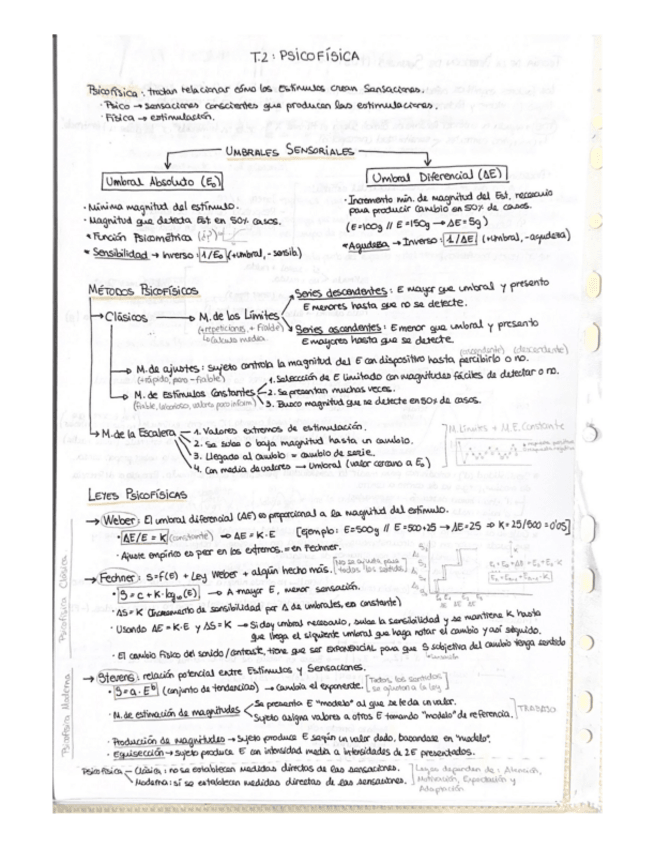 T.2: PSICOFÍSICA
Psicofísica: tratan relacionar cómo los Estímulos crean Sensaciones.
· Psico → sensaciones conscientes que producen las estimulaciones.
· Física → estimulación.
UMBRALES SENSORIALES
Umbral Absoluto (E₀)
· Mínima magnitud del estímulo.
· Magnitud que detecta Est en 50% casos.
* Función Psicométrica
* Sensibilidad → inverso: 1/E₀ (+umbral, -sensib)
Umbral Diferencial (ΔE)
· Incremento mín. de magnitud del Est, necesario
para producir cambio en 50% de casos.
(E=100g // E=150g → ΔE=5g)
* Agudeza → Inverso: 1/ΔE (+umbral, -agudeza)
MÉTODOS PSICOFÍSICOS
→ Clásicos → M. de los Límites
(+repeticiones, + fiable)
↳ Calculo media
Series descendentes: E mayor que umbral y presento
E menores hasta que no se detecte.
Series ascendentes: E menor que umbral y presento
E mayores hasta que se detecte.
(ascendente) (descendente)
→ M. de ajustes: Sujeto controla la magnitud del E con dispositivo hasta percibirlo o no.
(+rápido, pero -fiable)
→ M. de Estímulos Constantes
(fiable, laborioso, valores poco inform)
1. Selección de E limitado con magnitudes fáciles de detectar o no.
2. Se presentan muchas veces.
3. Busco magnitud que se detecte en 50% de casos.
→ M. de la Escalera
1. Valores extremos de estimulación.
2. Se sube o baja magnitud hasta un cambio.
3. Llegado al cambio = cambio de serie.
4. Con media de valores → Umbral (valor cercano a E₀)
M. Límites + M.E. Constante
LEYES PSICOFÍSICAS
Psicofísica Clásica
→ Weber: El umbral diferencial (ΔE) es proporcional a la magnitud del estímulo.
· ΔE/E = K (constante) ⇒ ΔE = K·E [Ejemplo: E=500g // E=500+25 → ΔE=25 ⇒ K=25/500=0'05]
· Ajuste empírico es peor en los extremos. = en Fechner.
→ Fechner: S=f(E) + Ley Weber + algún hecho más. [No se ajusta para todos los sentidos]
· S = c + K·log₁₀(E) → A mayor E, menor sensación.
· ΔS=K (Incremento de sensibilidad por Δ de umbrales, es constante)
· Usando ΔE=K·E y ΔS=K → Si doy umbral necesario, sube la sensibilidad y se mantiene K, hasta
que llega el siguiente umbral que haga notar el cambio y así seguido.
· El cambio físico del sonido/contraste, tiene que ser EXPONENCIAL para que S subjetiva del cambio tenga sentido
Psicofísica Moderna
→ Stevens: relación potencial entre Estímulos y Sensaciones.
· S=a·Eᵇ (conjunto de tendencias) → Cambia el exponente. [Todos los sentidos se ajustan a la ley]
· M. de estimación de magnitudes
Se presenta E "modelo" al que se le da un valor.
Sujeto asigna valores a otros E tomando "modelo" de referencia.
TRABAJO
· Producción de magnitudes → Sujeto produce E según un valor dado, basándose en "modelo".
· Equisección → sujeto produce E con intensidad media a intensidades de 2E presentados.
Psicofísica
Clásica: no se establecen medidas directas de las sensaciones.
Moderna: sí se establecen medidas directas de las sensaciones.
Leyes dependen de: Atención,
Motivación, Expectación y
Adaptación